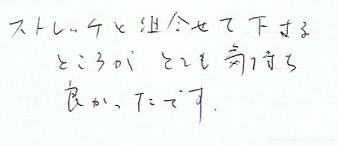 ストレッチと組合せて下さる
ところが とても 気持ち
良かったです.